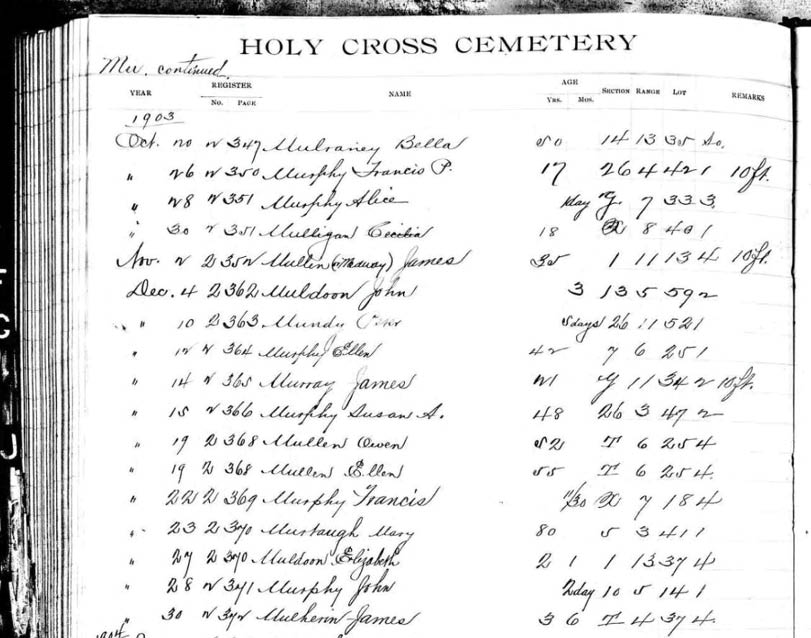 HOLY CROSS CEMETERY
Mu. continued.
YEAR REGISTER No. PAGE NAME AGE YRS. MOS. SECTION RANGE LOT REMARKS
1903
Oct. 20 2 347 Mulraney Bella 50 14 13 35 So.
" 26 2 350 Murphy Francis P. 17 26 4 421 10 ft.
" 28 2 351 Murphy Alice 1day Y. 7 333
" 30 2 351 Mulligan Cecilia 18 X 8 401
Nov. 2 2 352 Mullen James 35 1 11 134 10 ft.
Dec. 4 2 362 Muldoon John 3 13 5 592
" 10 2 363 Mundy 5days 26 11 521
" 12 2 364 Murphy Ellen 42 7 6 251
" 14 2 365 Murray James 21 Y 11 342 10 ft.
" 15 2 366 Murphy Susan A. 48 26 3 472
" 19 2 368 Mullen Owen 52 T 6 254
" 19 2 368 Mullen Ellen 55 T 6 254
" 22 2 369 Murphy Francis 11/30 X 7 184
" 23 2 370 Murtaugh Mary 80 5 3 411
" 27 2 370 Muldoon Elizabeth 2 1 1 13 374
" 28 2 371 Murphy John 2day 10 5 141
" 30 2 372 Mulherin James 3 6 T 4 374